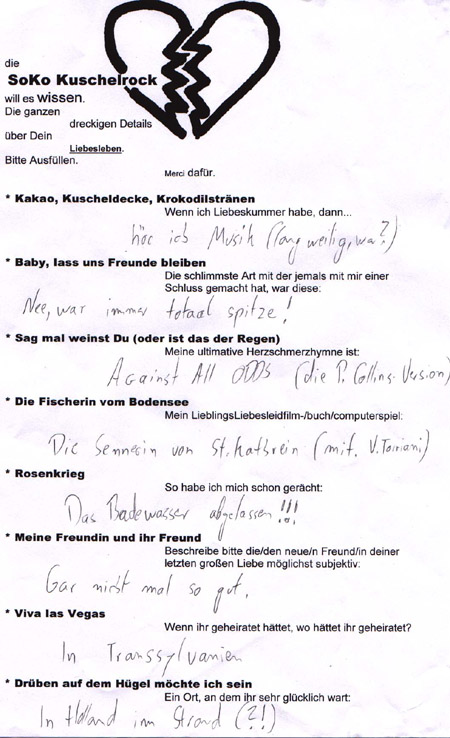 die
SoKo Kuschelrock
will es wissen.
Die ganzen
dreckigen Details
über Dein
Liebesleben.
Bitte Ausfüllen.
Merci dafür.
* Kakao, Kuscheldecke, Krokodilstränen
Wenn ich Liebeskummer habe, dann...
hör ich Musik (langweilig, wa?)
* Baby, lass uns Freunde bleiben
Die schlimmste Art mit der jemals mit mir einer
Schluss gemacht hat, war diese:
Nee, war immer totaal spitze!
* Sag mal weinst Du (oder ist das der Regen)
Meine ultimative Herzschmerzhymne ist:
Against All ODDS (die P. Collins-Version)
* Die Fischerin vom Bodensee
Mein LieblingsLiebesleidfilm-/buch/computerspiel:
Die Sennerin von St. Kathrein (mit. V.
* Rosenkrieg
So habe ich mich schon gerächt:
Das Badewasser abgelassen!!!
* Meine Freundin und ihr Freund
Beschreibe bitte die/den neue/n Freund/in deiner
letzten großen Liebe möglichst subjektiv:
Gar nicht mal so gut.
* Viva las Vegas
Wenn ihr geheiratet hättet, wo hättet ihr geheiratet?
In Transsylvanien
* Drüben auf dem Hügel möchte ich sein
Ein Ort, an dem ihr sehr glücklich wart:
In Holland im Strand (?!)